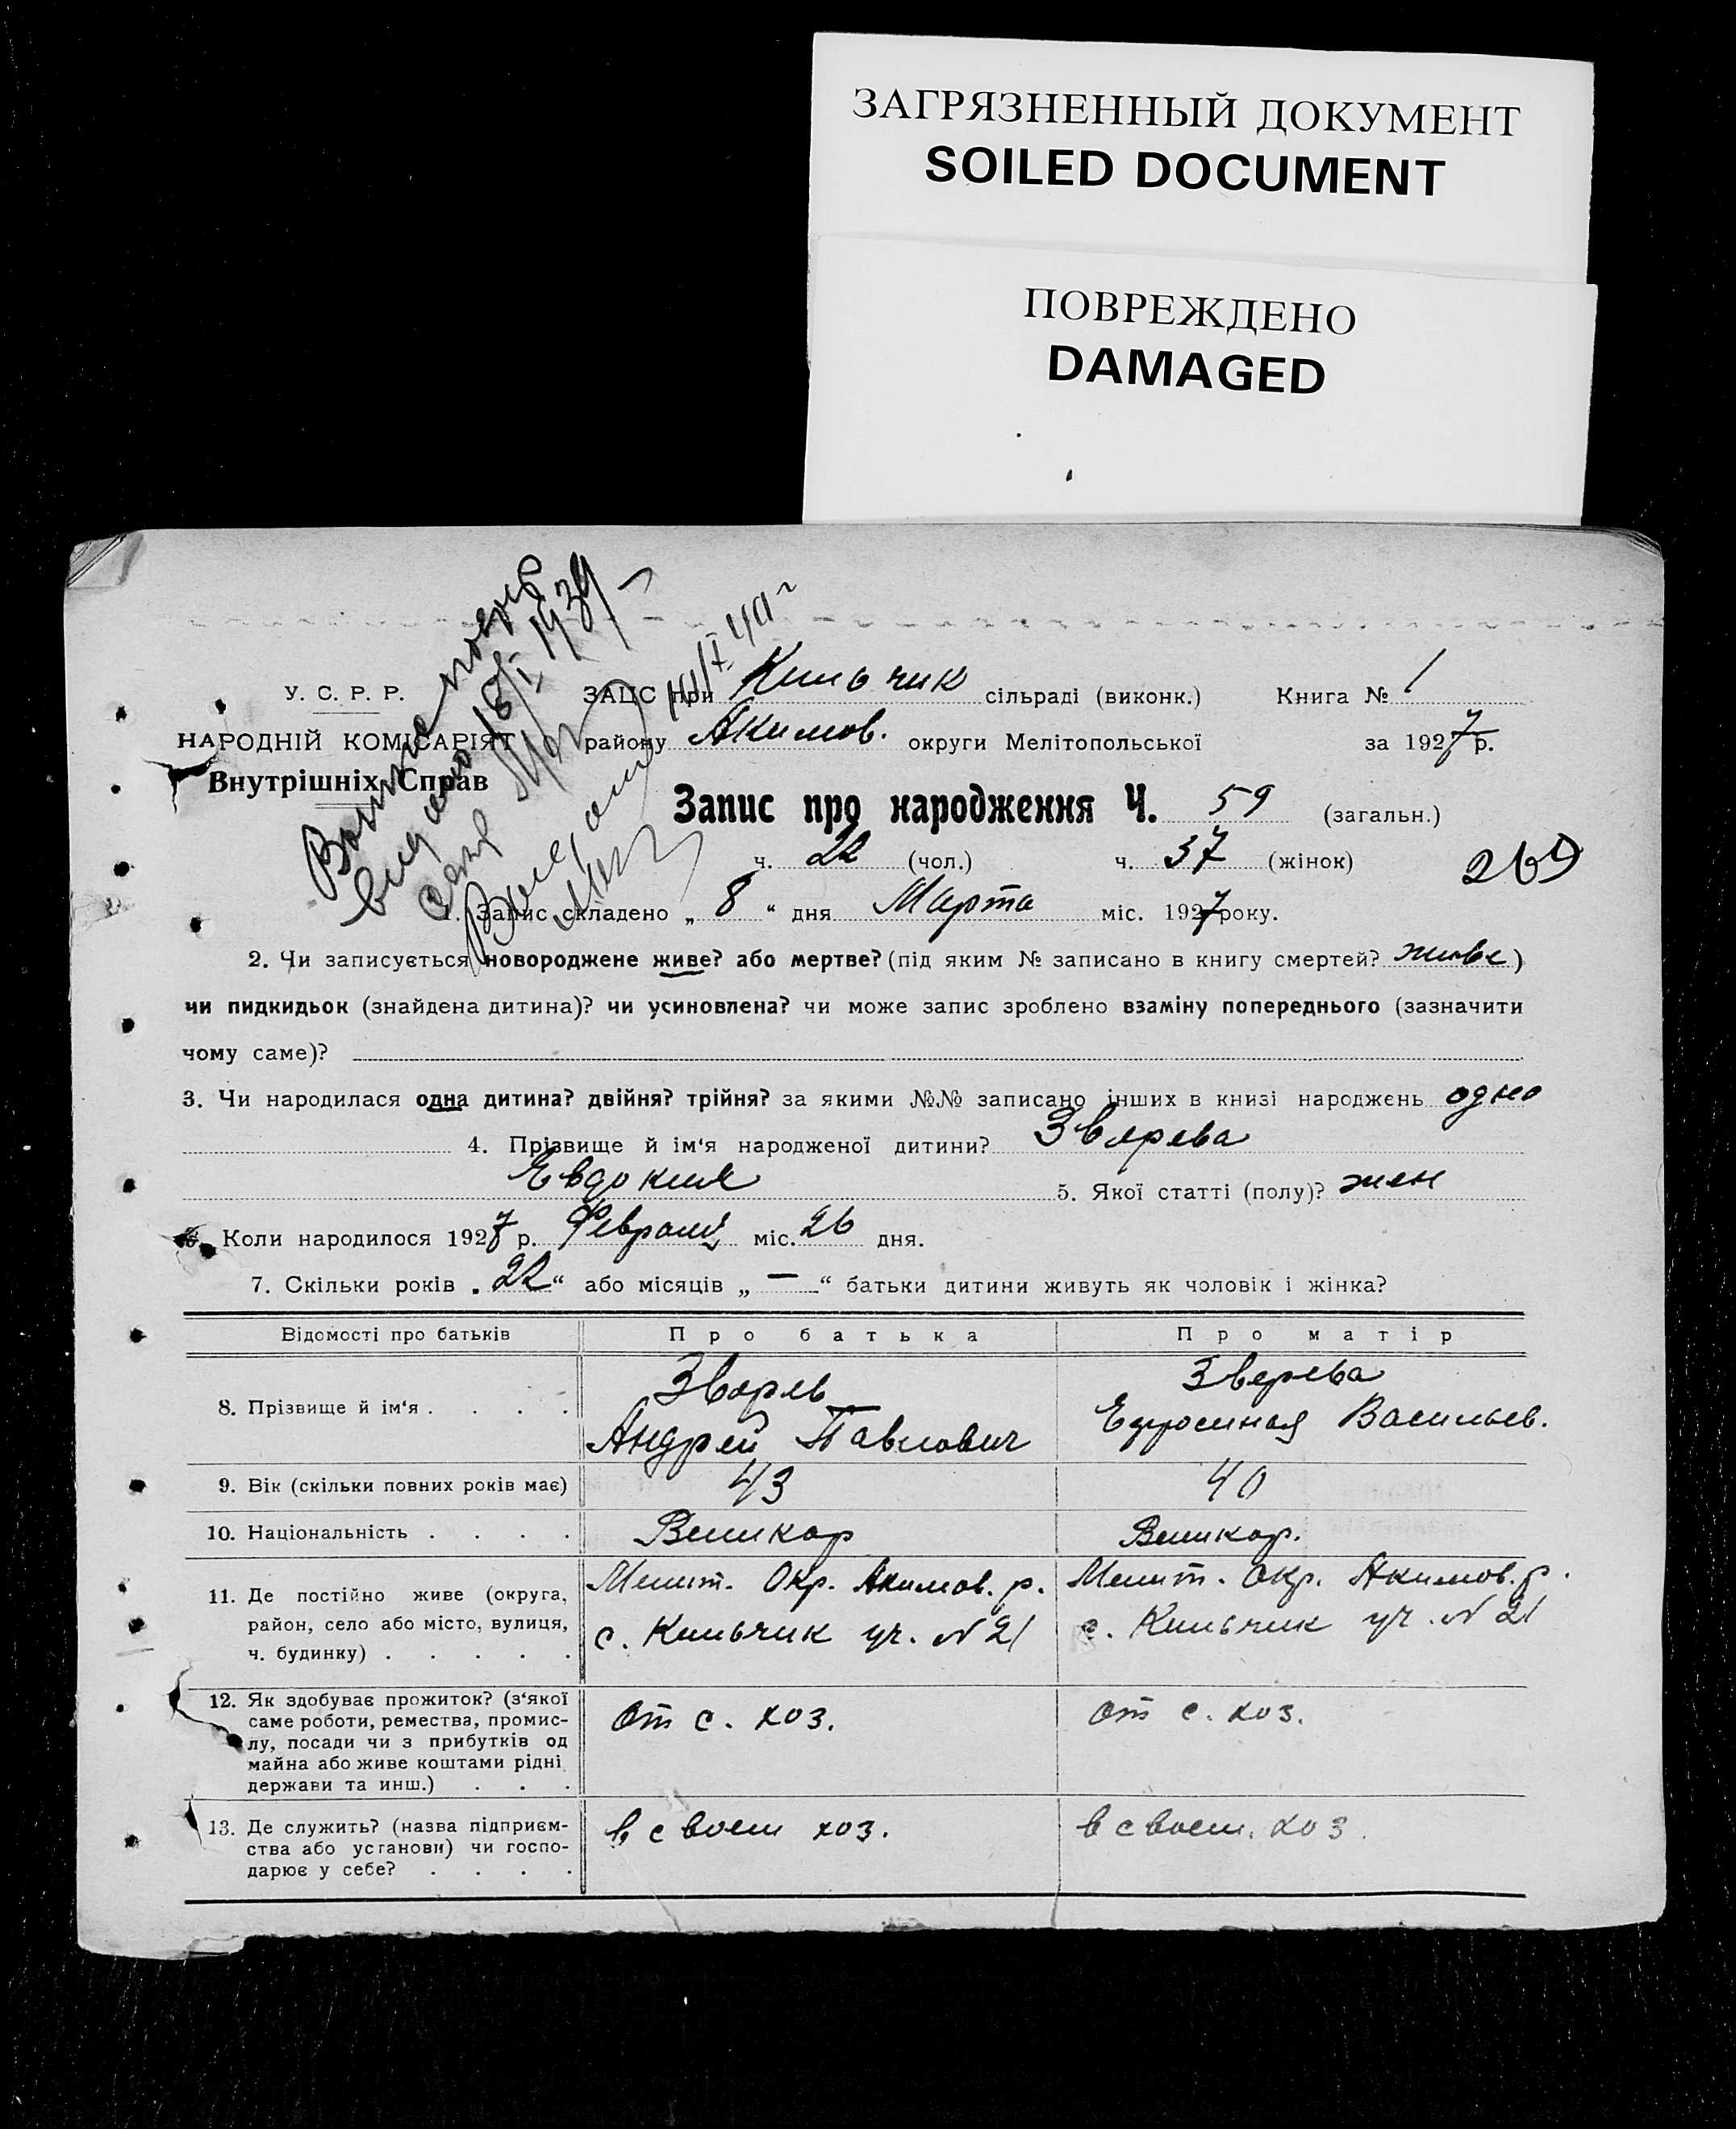 ЗАГРЯЗНЕННЫЙ ДОКУМЕНТ
SOILED DOCUMENT
ПОВРЕЖДЕНО
DAMAGED
У. С. Р. Р.
НАРОДНІЙ КОМІСАРІЯТ
Внутрішніх Справ
ЗАЦС при Кильчик сільраді (виконк.) Книга № 1
району Акимов. округи Мелітопольської за 1927 р.
Запис про народження Ч. 59 (загальн.)
ч. 22 (чол.) ч. 37 (жінок)
269
1. Запис складено „ 8 “ дня Марта міс. 1927 року.
2. Чи записується новороджене живе? або мертве? (під яким № записано в книгу смертей? живе )
чи пидкидьок (знайдена дитина)? чи усиновлена? чи може запис зроблено взаміну попереднього (зазначити
чому саме)?
3. Чи народилася одна дитина? двійня? трійня? за якими №№ записано інших в книзі народжень одно
4. Прізвище й ім‘я народженої дитини? Зверева
Евдокия 5. Якої статті (полу)? жен
6. Коли народилося 1927 р. Февраля міс. 26 дня.
7. Скільки років „ 22 “ або місяців „ — “ батьки дитини живуть як чоловік і жінка?
Відомості про батьків Про батька Про матір
8. Прізвище й ім‘я . . . . Зверев Зверева
Андрей Павлович Ефросиная Васильев.
9. Вік (скільки повних років має) 43 40
10. Національність . . . . Великор Великор.
11. Де постійно живе (округа, Мелит. Окр. Акимов. р. Мелит. Окр. Акимов. р.
район, село або місто, вулиця, с. Кильчик уч. N 21 с. Кильчик уч. N 21
ч. будинку) . . . . .
12. Як здобуває прожиток? (з‘якої
саме роботи, ремества, промис- От с. хоз. От с. хоз.
лу, посади чи з прибутків од
майна або живе коштами рідні
держави та инш.) . . .
13. Де служить? (назва підприєм- в своем хоз. в своем. хоз.
ства або установи) чи госпо-
дарює у себе? . . . .